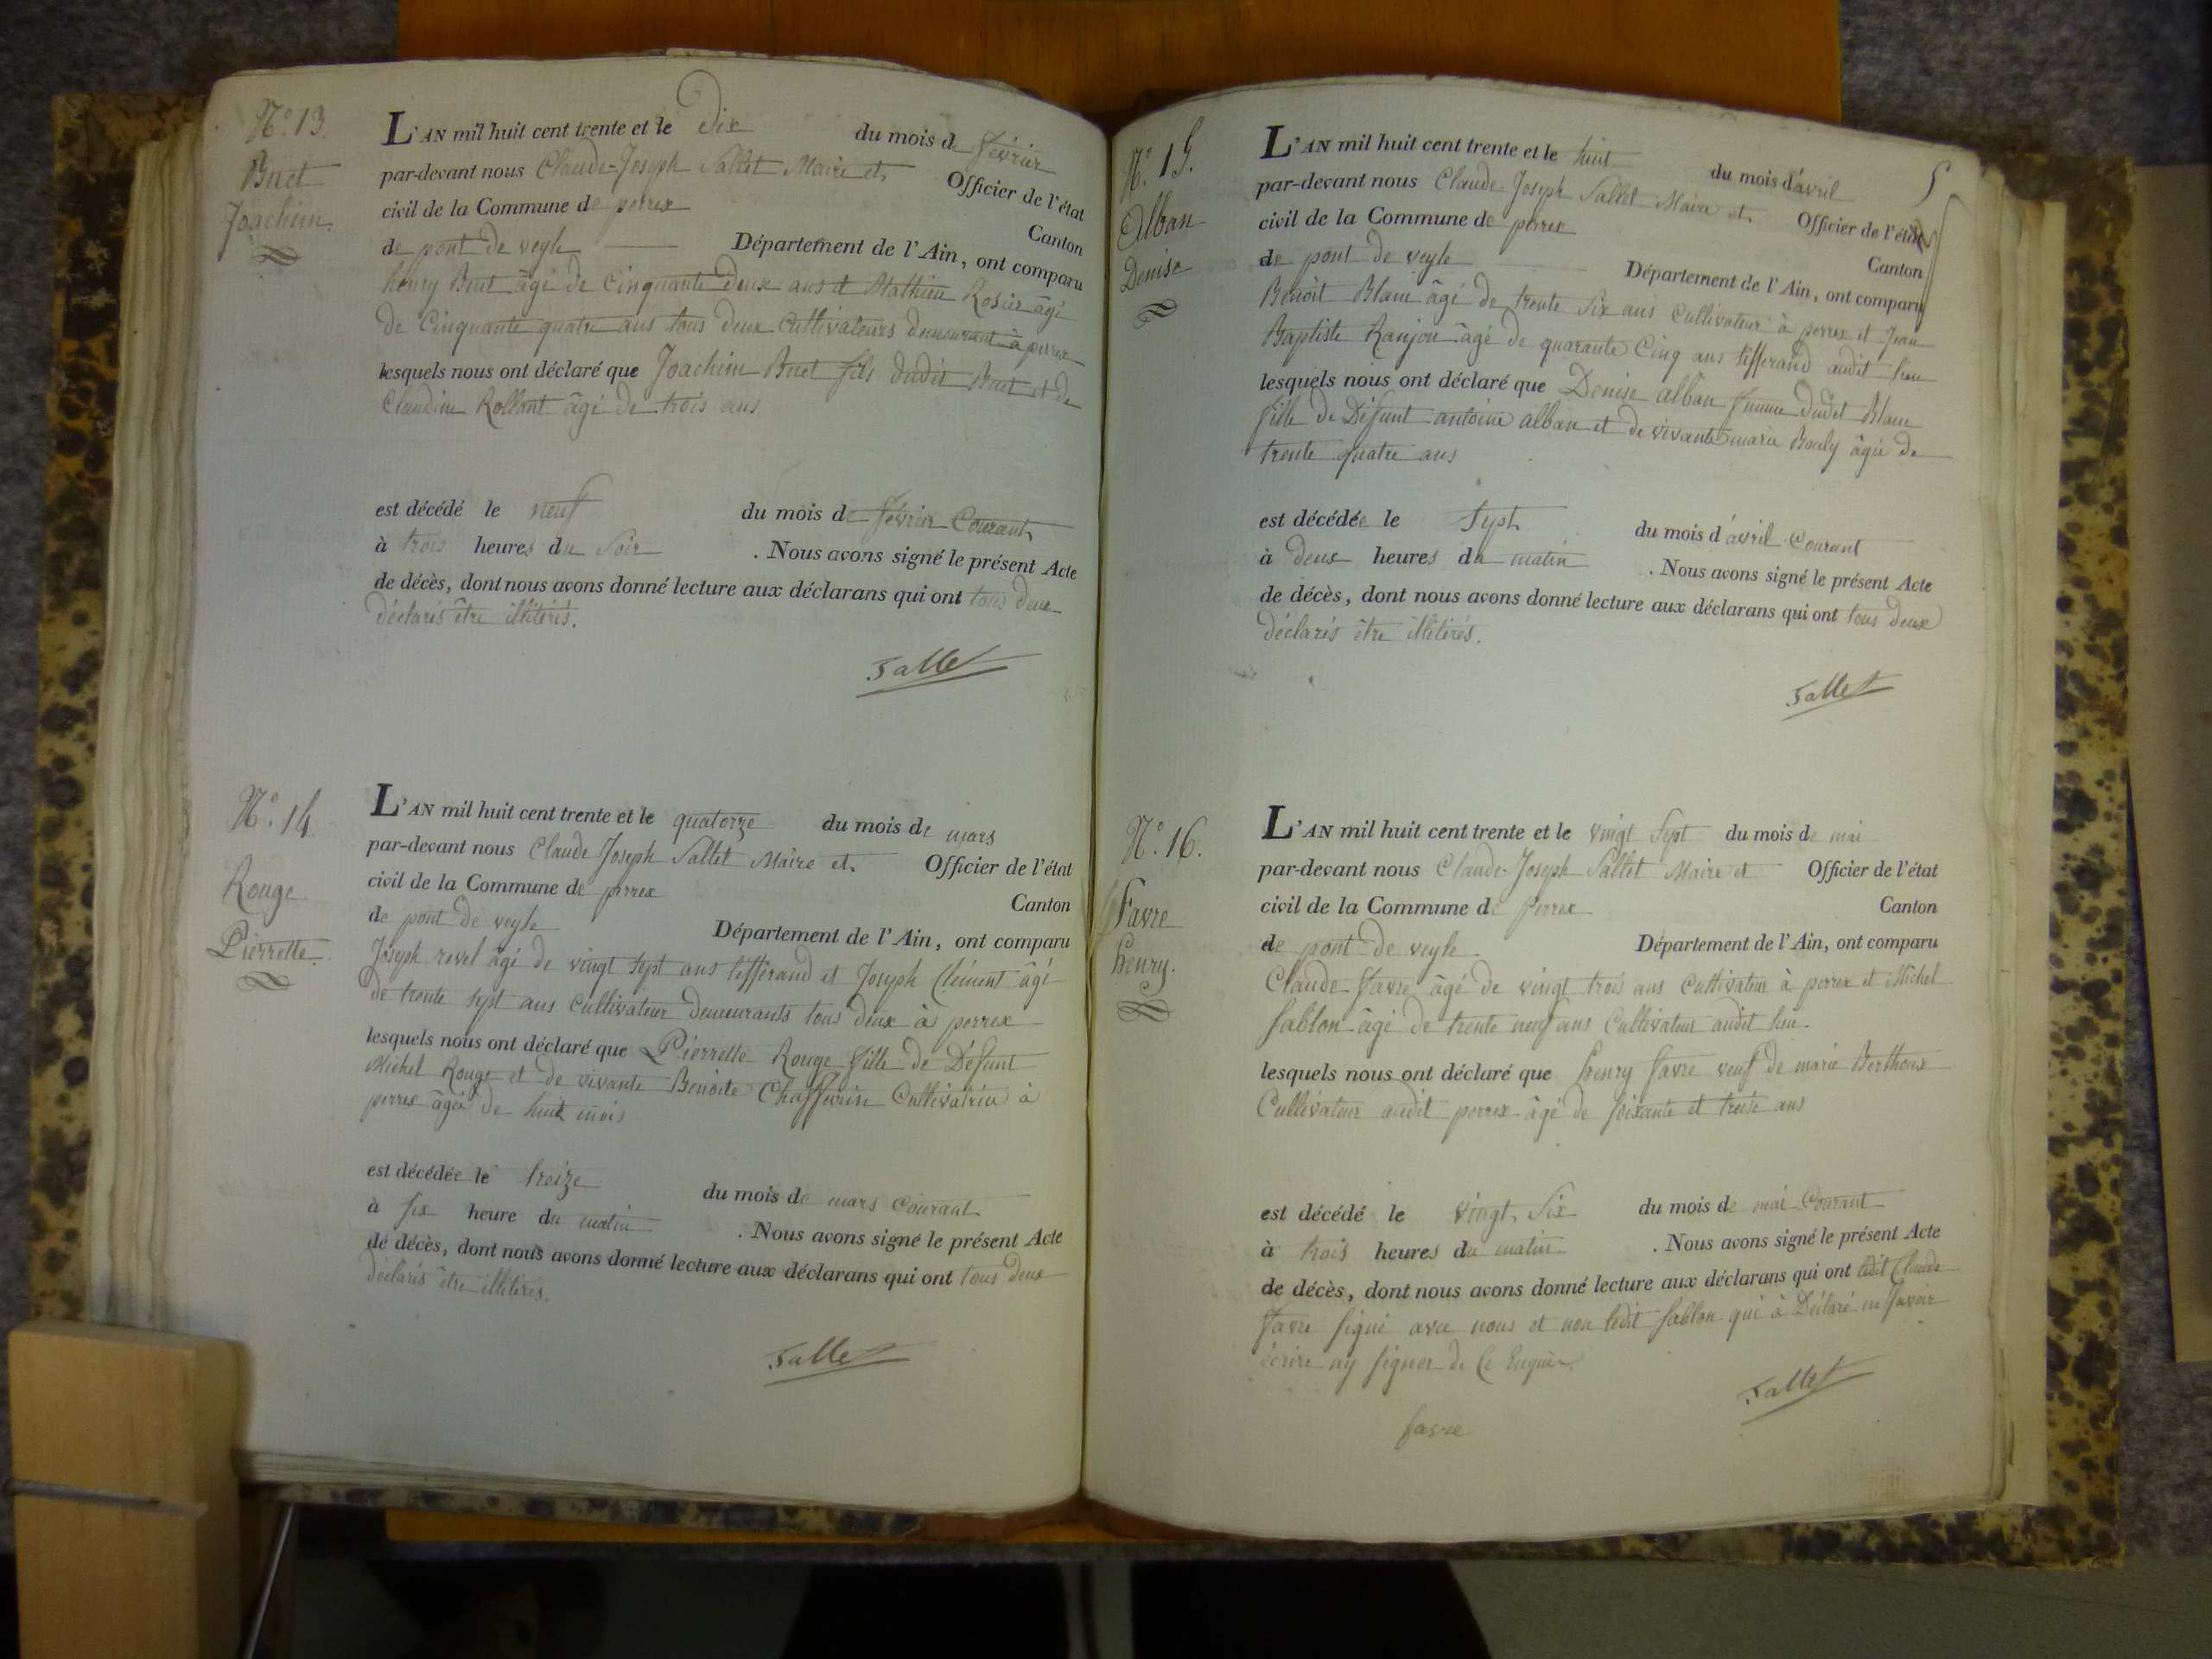 N.o 13.
Buet
Joachim.
L'AN mil huit cent trente et le Dix du mois de février
par-devant nous Claude-Joseph Sallet Maire et Officier de l'état
civil de la Commune de perrex Canton
de pont de veyle Département de l'Ain, ont comparu
henry Buet âgé de Cinquante deux ans et Mathieu Rosier âgé
de Cinquante quatre ans tous deux Cultivateurs demeurant à perrex
lesquels nous ont déclaré que Joachim Buet fils dudit Buet et de
Claudine Rollant âgé de trois ans
est décédé le neuf du mois de février Courant
à trois heures du Soir . Nous avons signé le présent Acte
de décès, dont nous avons donné lecture aux déclarans qui ont tous deux
déclarés être illitérés.
Sallet
N.o 14
Rouge
Pierrette.
L'AN mil huit cent trente et le quatorze du mois de mars
par-devant nous Claude Joseph Sallet Maire et Officier de l'état
civil de la Commune de perrex Canton
de pont de veyle Département de l'Ain, ont comparu
Joseph revel âgé de vingt sept ans tifferand et Joseph Clément âgé
de trente sept ans Cultivateur demeurants tous deux à perrex
lesquels nous ont déclaré que Pierrette Rouge fille de Défunt
Michel Rouge et de vivante Benoite Chaffurin Cultivatrice à
perrex âgée de huit mois
est décédée le treize du mois de mars Courant
à six heure du matin . Nous avons signé le présent Acte
de décès, dont nous avons donné lecture aux déclarans qui ont tous deux
déclarés être illitérés.
Sallet
5
N.o 15.
Alban
Denise
L'AN mil huit cent trente et le huit du mois d'avril
par-devant nous Claude Joseph Sallet Maire et Officier de l'état
civil de la Commune de perrex Canton
de pont de veyle Département de l'Ain, ont comparu
Benoit Blanc âgé de trente Six ans Cultivateur à perrex et Jean
Baptiste Ranjon âgé de quarante Cinq ans tifferand audit lieu
lesquels nous ont déclaré que Denise alban femme dudit Blanc
fille de Défunt antoine alban et de vivante marie Bouly âgée de
trente quatre ans
est décédée le Sept du mois d'avril Courant
à Deux heures du matin . Nous avons signé le présent Acte
de décès, dont nous avons donné lecture aux déclarans qui ont tous deux
déclarés être illitérés.
Sallet
N.o 16.
Favre
henry.
L'AN mil huit cent trente et le vingt Sept du mois de mai
par-devant nous Claude-Joseph Sallet Maire et Officier de l'état
civil de la Commune de perrex Canton
de pont de veyle Département de l'Ain, ont comparu
Claude favre âgé de vingt trois ans Cultivateur à perrex et Michel
Sablon âgé de trente neuf ans Cultivateur audit lieu
lesquels nous ont déclaré que henry favre veuf de marie Berthoux
Cultivateur audit perrex âgé de Soixante et treize ans
est décédé le vingt Six du mois de mai Courant
à trois heures du matin . Nous avons signé le présent Acte
de décès, dont nous avons donné lecture aux déclarans qui ont ledit Claude
favre signé avec nous et non ledit Sablon qui à Déclaré ne Savoir
écrire ny signer de Ce Enquis.
Sallet
favre